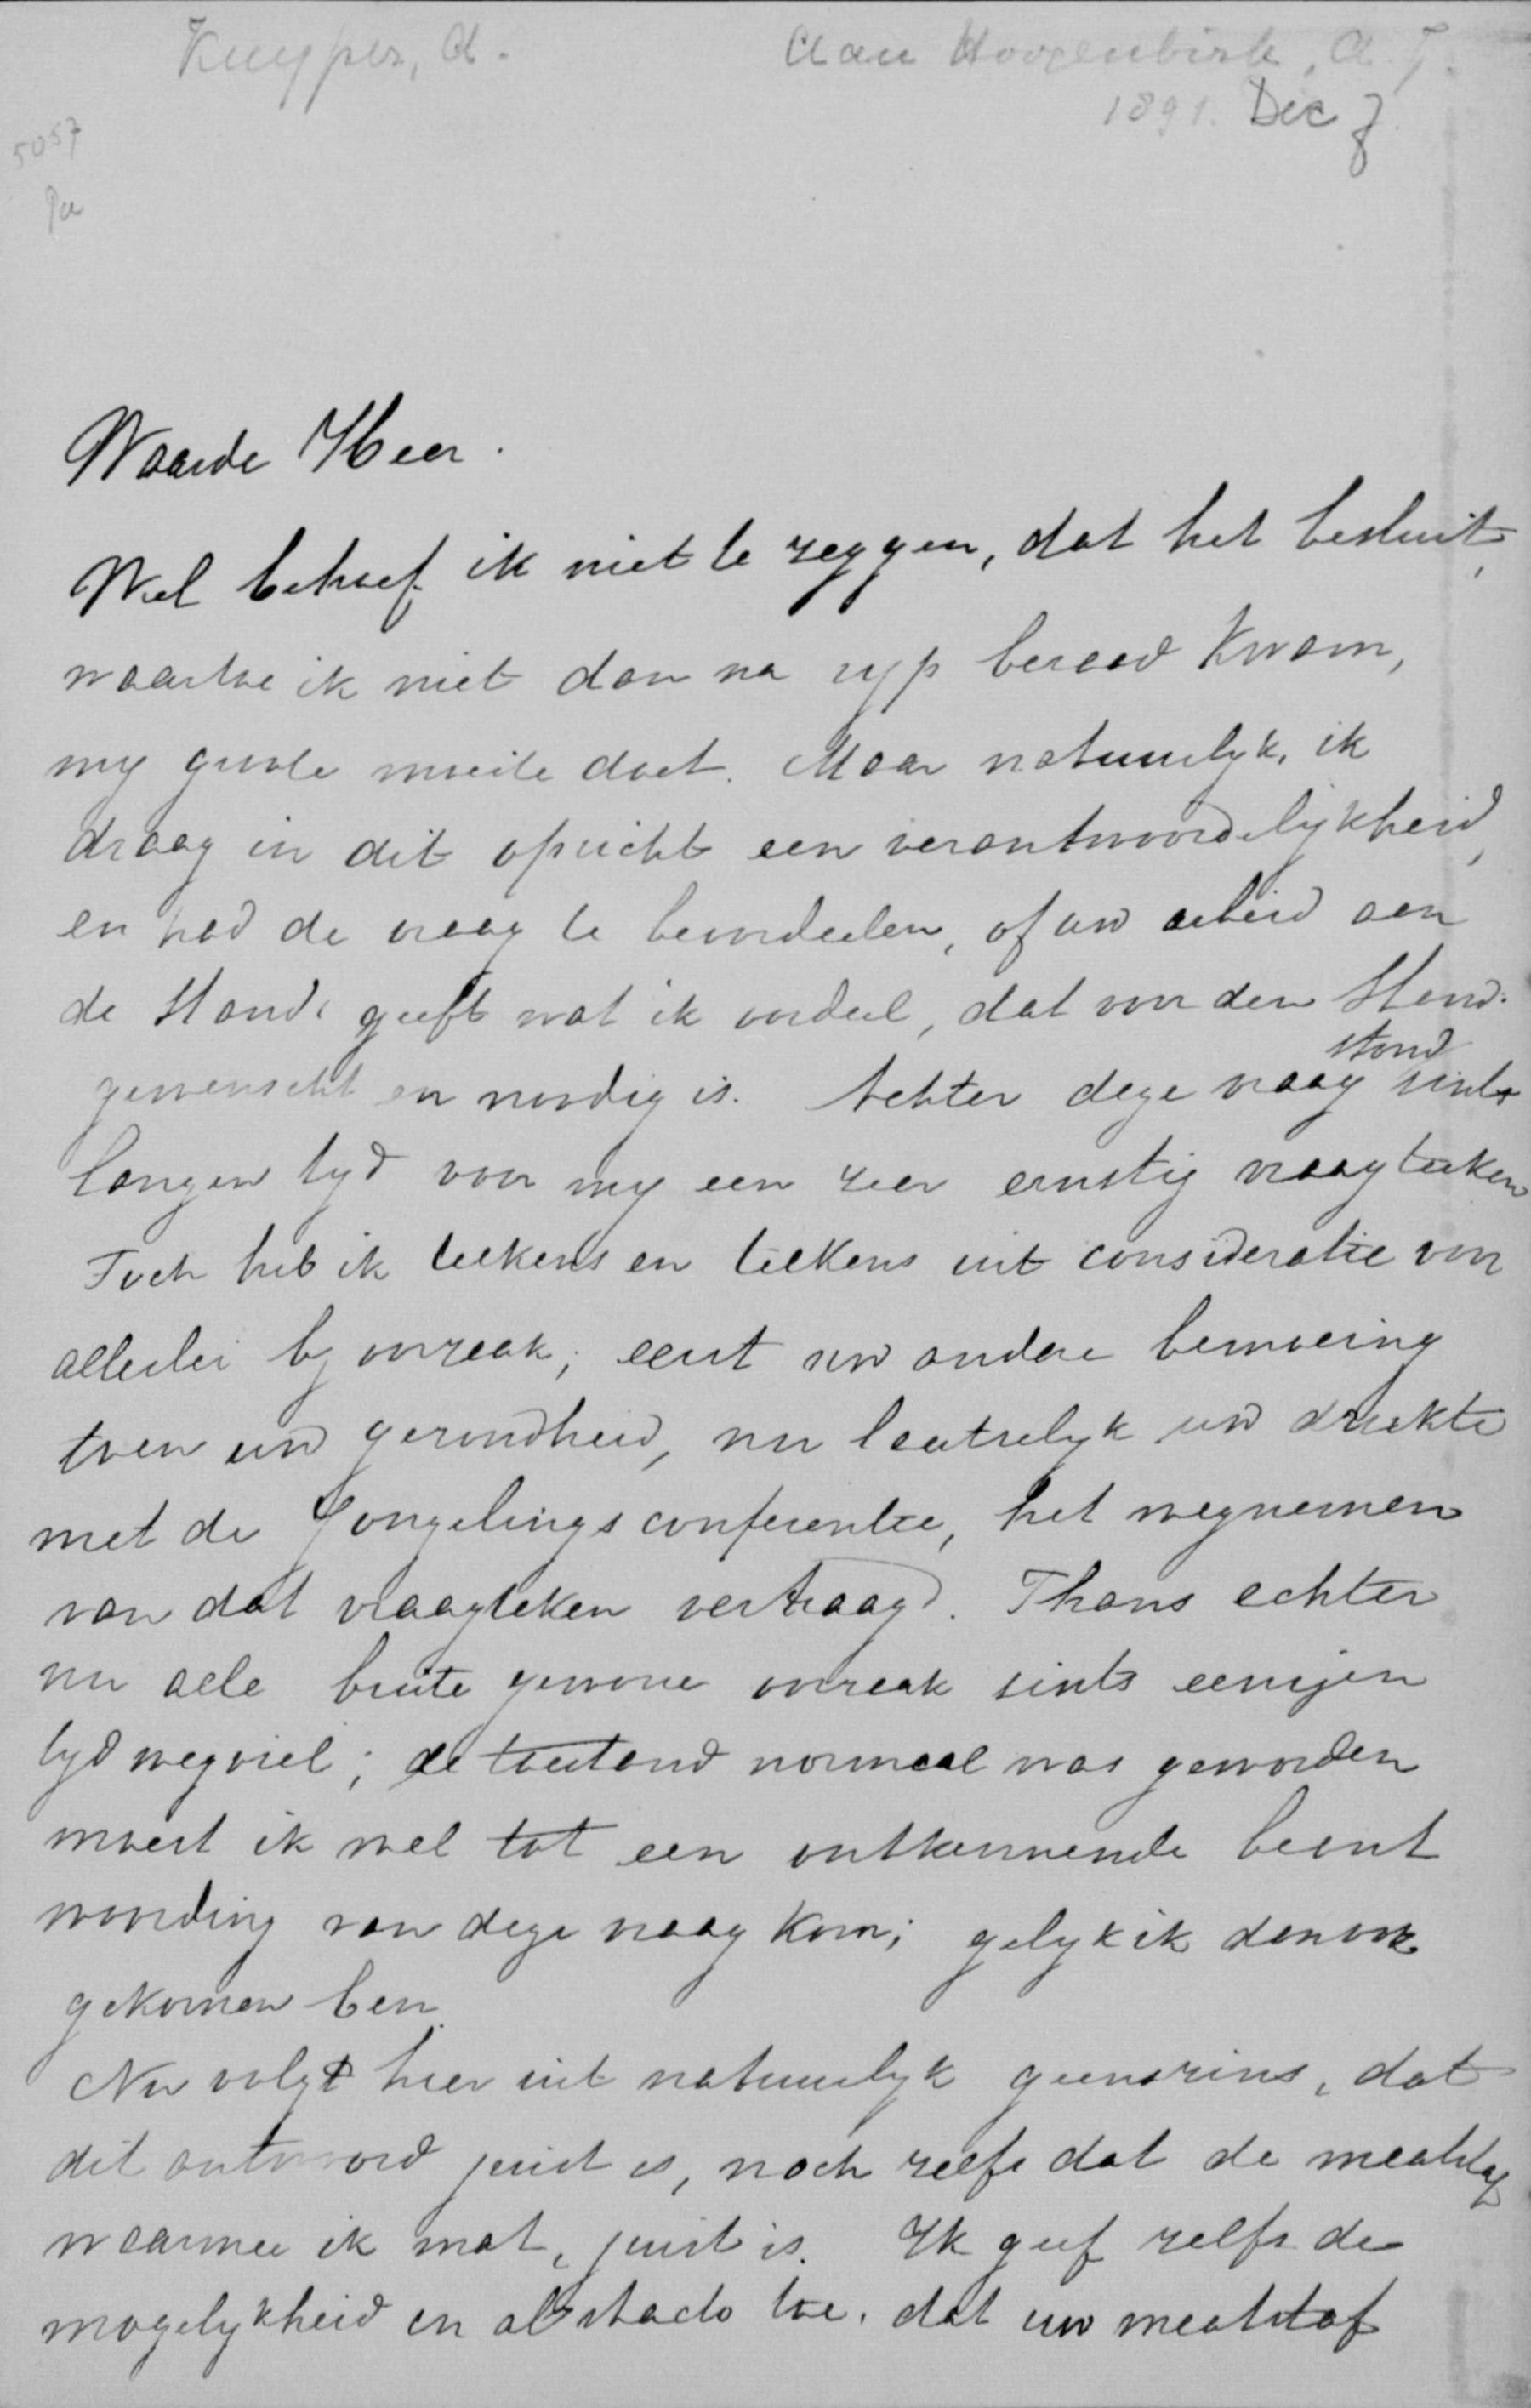 Kuyper, A. Aan Hoogenbirk, A. J.
1891. Dec 7.
5057
Pa
Waarde Heer.
Wel behoef ik niet te zeggen, dat het besluit,
waartoe ik niet dan na ryp beraad kwam,
my groote moeite doet. Maar natuurlyk, ik
draag in dit opzicht een verantwoordelykheid,
en had de vraag te beoordeelen, of uw arbeid aan
de Stand. geeft wat ik oordeel, dat voor den Stand.
gewenscht en noodig is. Achter deze vraag stond sints
langen tyd voor my een zeer ernstig vraagteeken
Toch heb ik telkens en telkens uit consideratie voor
allerlei byoorzaak; eerst uw andere bemoeiing
toen uw gezondheid, nu laatstelyk uw drukte
met de Jongelingsconferentie, het wegnemen
van dat vraagteken vertraagd. Thans echter
nu alle buite gewone oorzaak sints eenigen
tyd wegviel; de toestand normaal was geworden
moest ik wel tot een ontkennende beant
woording van deze vraag kom; gelyk ik dan ook
gekomen ben.
Nu volgt hier uit natuurlyk geenszins, dat
dit antwoord juist is, noch zelfs dat de maatstaf
waarmee ik mat, juist is. Ik geef zelfs de
mogelykheid in abstracto toe, dat uw maatstaf